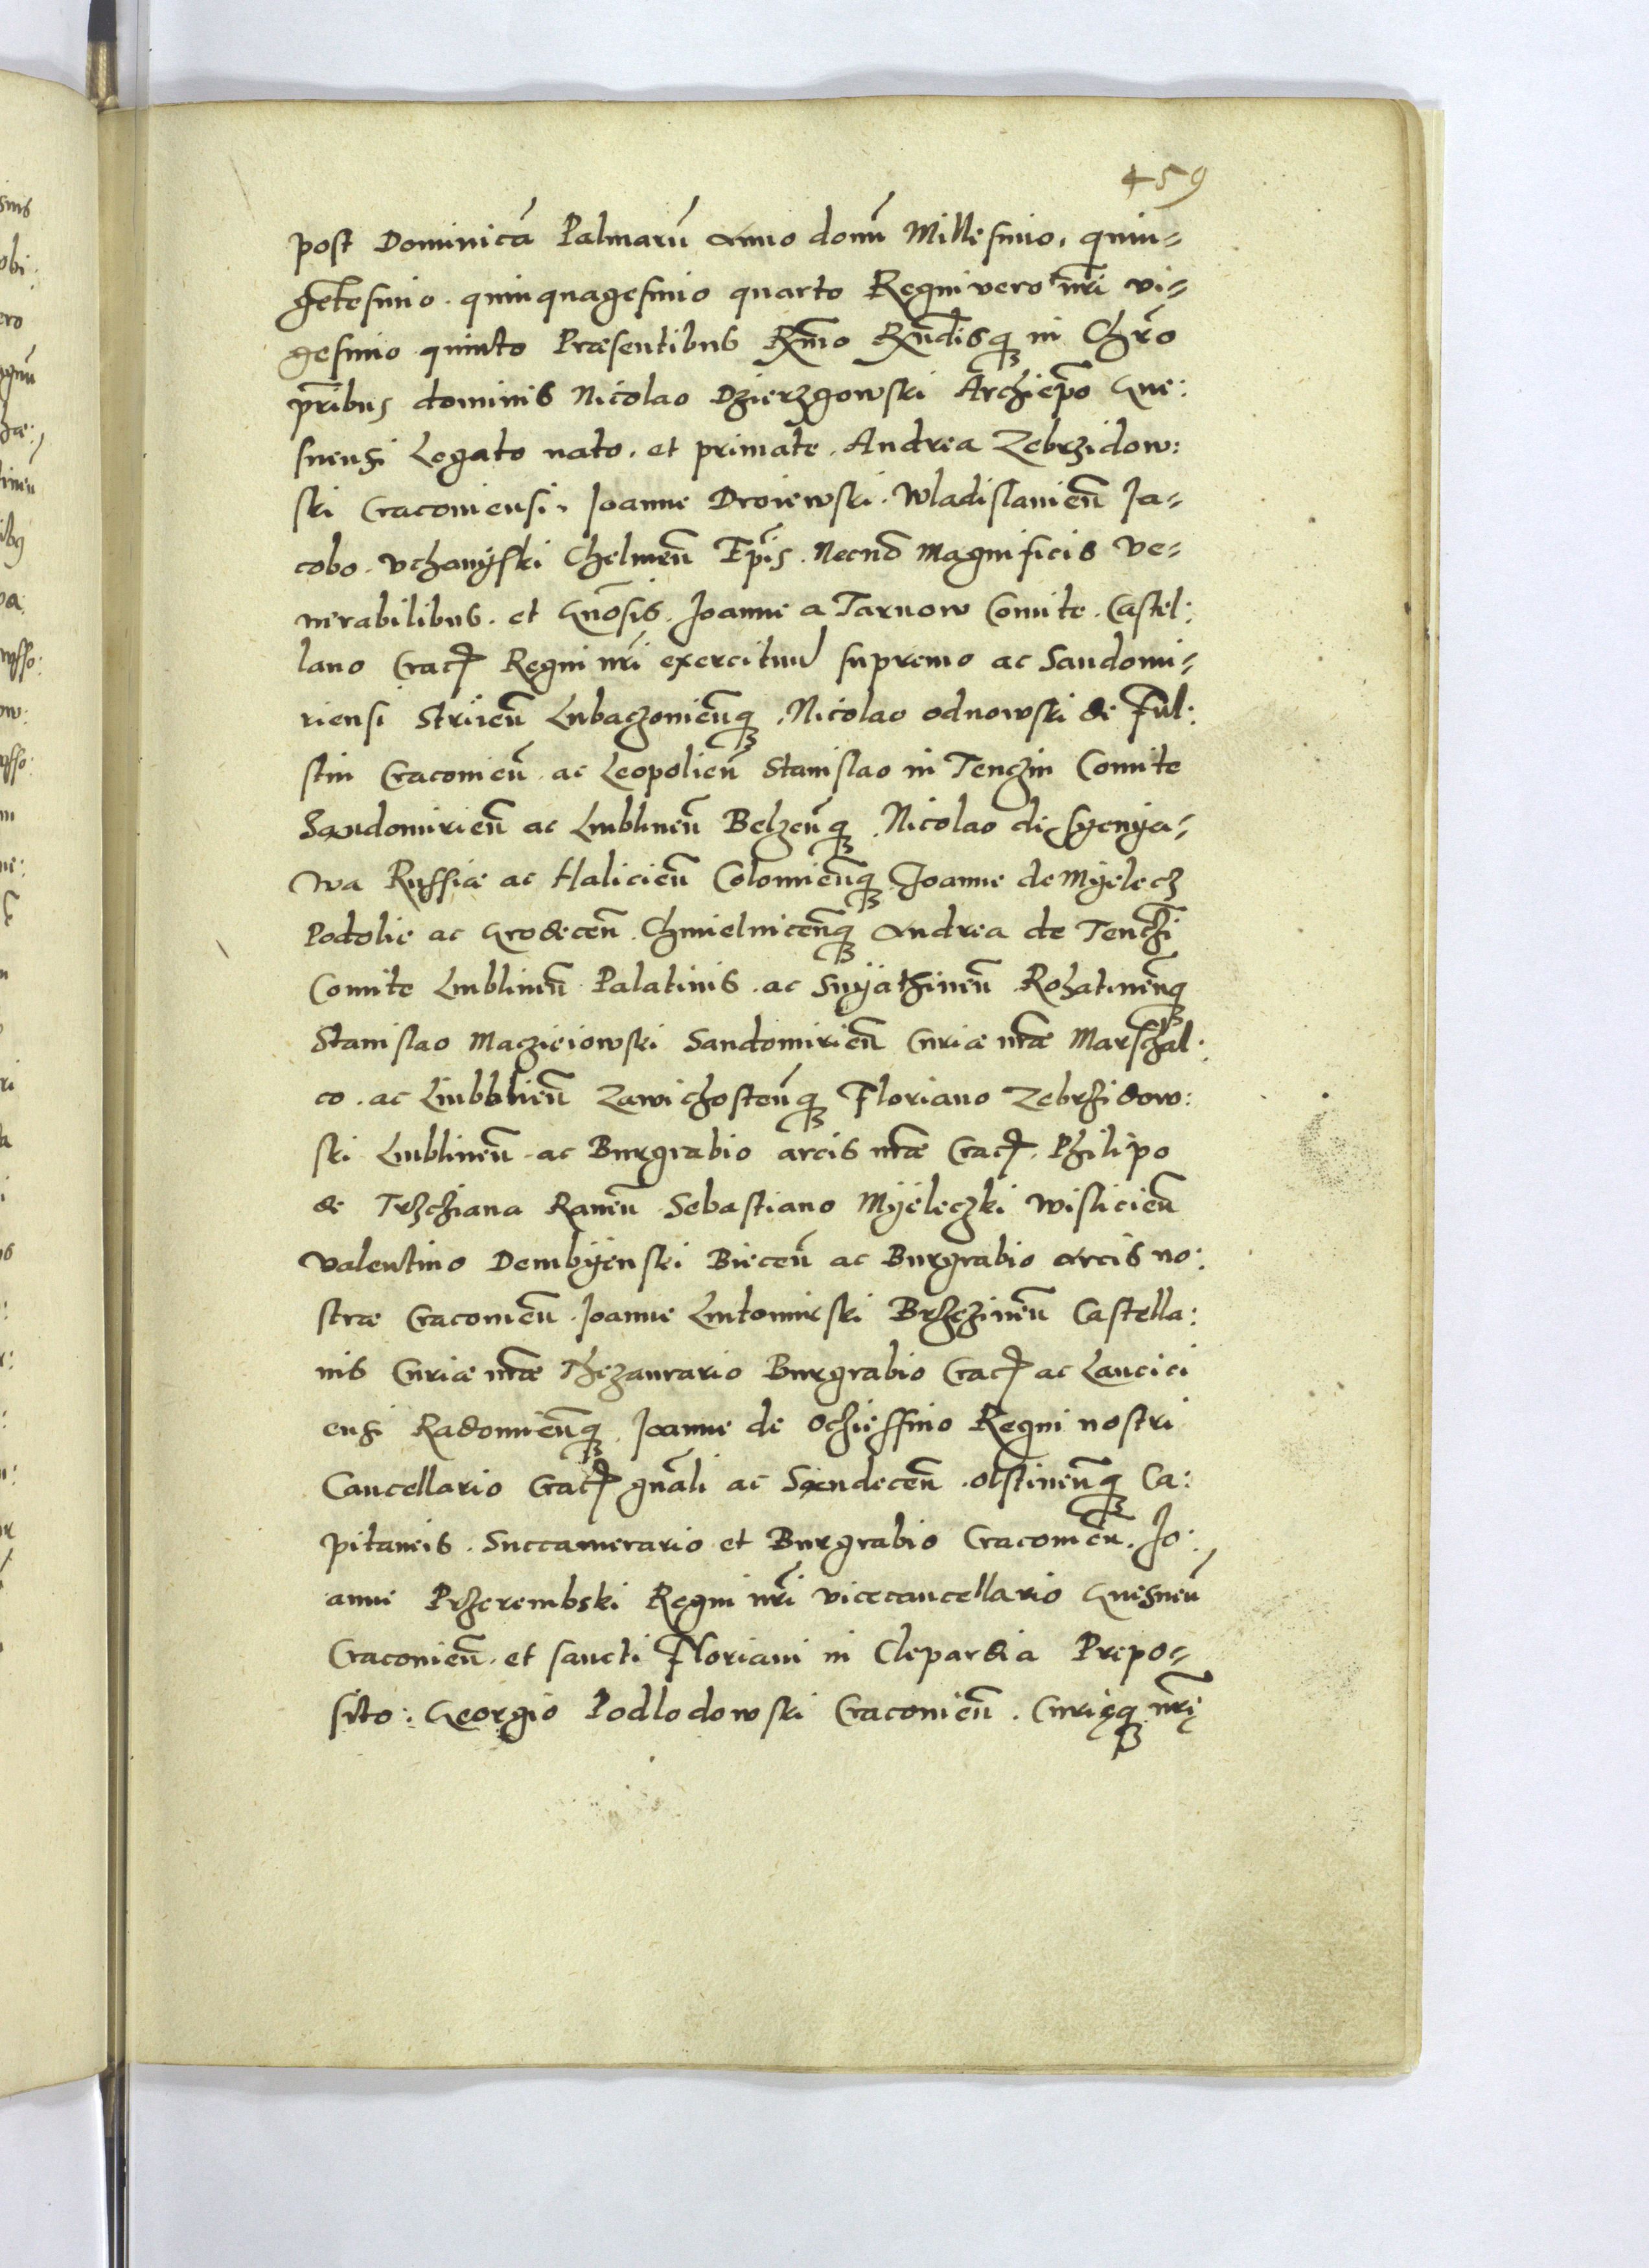 459
post Dominicā Palmarū Anno domī Millesimo, quin-
gētesimo. quinquagesimo quarto Regni vero nr̄i vi-
gesimo quinto Præsentibus Rx̄mo Rx̄ndisq̃ in Chr̄o
pr̄ibus dominis Nicolao Dzierzgowski Archiep̄o Gne:
snensi Legato nato. et primate. Andrea Zebrzidow:
ski Cracoviensi. Joanne Droiewski. Wladislavień Ja-
cobo. Vchanÿski Chelmeń Ep̄is. Necnō Magnificis Ve-
nerabilibus. et Gnōsis. Joanne a Tarnow Comite. Castel:
lano Crac̃ Regni nr̄i exercituū supremo ac Sandomi-
riensi Strijeń Lubaczovieńq̃. Nicolao odnowski de Ful:
stin Cracovień. ac Leopolień Stanislao in Tenczin Comite
Sandomirień ac Lublineń Belzeńq̃. Nicolao de Syenya-
wa Russiæ ac Halicień Colomieńq̃ Joanne de Mÿelecz
Podolie ac Grodeceń. Chmielniceńq̃ Andrea de Tenchī
Comite Lublineń Palatinis. ac Snÿathineń Rohatineńq̃
Stanislao Maczieiowski Sandomirień Curiæ nr̄æ Marschal:
co. ac Lubblień Zawichosteńq̃ Floriano Zebrzidow:
ski Lublineń. ac Burgrabio arcis nr̄æ Crac̃. Philipo
de Trzchiana Raweń Sebastiano Mÿeleczki Wislicień
Valentino Dembÿenski Bieceń ac Burgrabio arcis no:
stræ Cracovień. Joanne Lutomirski Brzezineń Castella:
nis Curiæ nr̄æ Thezaurario Burgrabio Crac̃ ac Lancici
ensi Radomieńq̃. Joanne de Ochiessino Regni nostri
Cancellario Crac̃ gnāli ac Sandeceń. olstineńq̃ Ca:
pitaneis. Succamerario et Burgrabio Cracovień. Jo:
anne Przerembski Regni nr̄i vicecancellario Gnesneń
Cracovień. et sancti Floriani in Clepardia Prepo-
sito: Georgio Podlodowski Cracovień. Curięq̃ nr̄ę